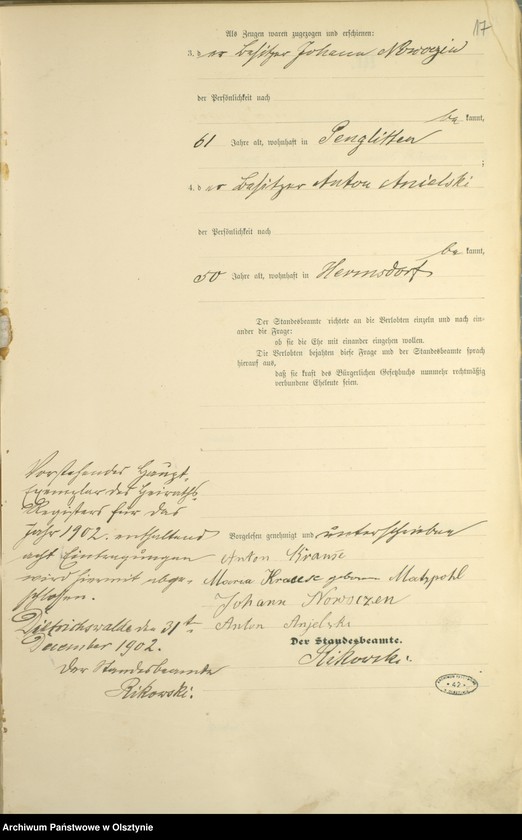 17
Als Zeugen waren zugezogen und erschienen:
3. der Besitzer Johann Noworzin
der Persönlichkeit nach
be kannt,
61 Jahre alt, wohnhaft in Penglitten
;
4. der Besitzer Anton Anielski
der Persönlichkeit nach
be kannt,
50 Jahre alt, wohnhaft in Hermsdorf
Der Standesbeamte richtete an die Verlobten einzeln und nach ein-
ander die Frage:
ob sie die Ehe mit einander eingehen wollen.
Die Verlobten bejahten diese Frage und der Standesbeamte sprach
hierauf aus,
daß sie kraft des Bürgerlichen Gesetzbuchs nunmehr rechtmäßig
verbundene Eheleute seien.
Vorgelesen genehmigt und unterschrieben
Anton Krause
Maria Krause geboren Matzpohl
Johann Noworzen
Anton Anjelski
Der Standesbeamte.
Rikowski.
Vorstehendes Haupt-
Exemplar des Heiraths-
Registers für das
Jahr 1902. enthaltend
acht Eintragungen
wird hiermit abge-
schlossen.
Dietrichswalde den 31t
December 1902.
Der Standesbeamte
Rikowski.
Archiwum Państwowe w Olsztynie